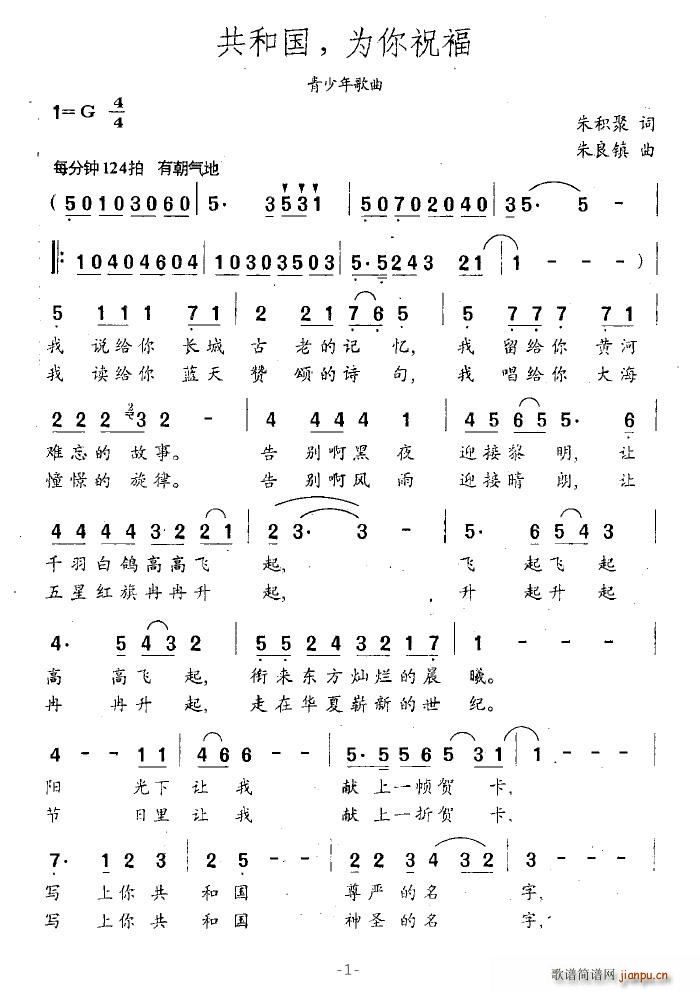 共和国，为你祝福
青少年歌曲
1=G 4/4
朱积聚 词
朱良镇 曲
每分钟124拍 有朝气地
( 50103060 | 5· 3531 | 50702040 | 35· 5 - - |
|: 10404604 | 10303503 | 5·5243 211 | 1 - - - )
5 111 71 | 2 221 76 5 | 5 777 71 |
我 说给你 长城 古 老的记 忆, 我 留给你 黄河
我 读给你 蓝天 赞 颂的诗 句, 我 唱给你 大海
222 32 2 - | 4 444 4 1 | 4565 5· 6 |
难忘的 故事。 告 别啊黑 夜 迎接黎 明, 让
憧憬的 旋律。 告 别啊风 雨 迎接晴 朗, 让
4444 32221 | 23· 3 - | 5· 6543 |
千羽白鸽高高飞 起, 飞 起飞起
五星红旗冉冉升 起, 升 起升起
4· 5432 | 55243217 | 1 - - - |
高 高飞 起, 衔来东方灿烂的晨 曦。
冉 冉升 起, 走在华夏崭新的世 纪。
4 - - 11 | 466 - - | 5·56531 | 1 - - - |
阳 光下 让我 献上一帧贺 卡,
节 日里 让我 献上一折贺 卡,
7· 123 | 25· - | 223432 | 1 - - - |
写 上你共 和国 尊严的名 字,
写 上你共 和国 神圣的名 字,
-1-
歌谱简谱网 jianpu.cn